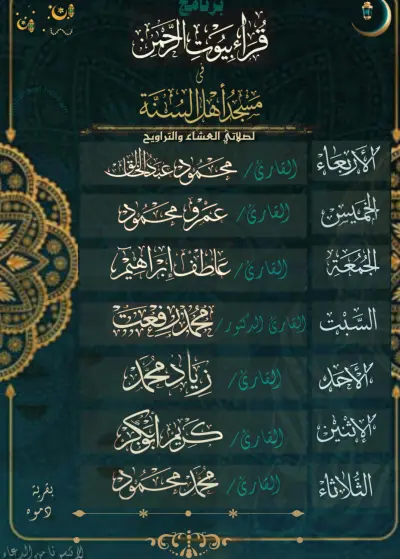 برنامج
قُرَّاءِ بُيُوتِ الرَّحْمَن
في
مَسْجِد أَهْلِ السُّنَّة
لصلاتي العشاء والتراويح
الأَرْبِعَاء القارئ/ محمود عبدالخالق
الخَمِيس القارئ/ عمرو محمود
الجُمُعَة القارئ/ عاطف إبراهيم
السَّبْت القارئ الدكتور/ محمد رفعت
الأَحَد القارئ/ زياد محمد
الإثْنَيْن القارئ/ كريم أبوبكر
الثُّلَاثَاء القارئ/ محمد محمود
بقرية
دموه
لا تنسونا من الدعاء